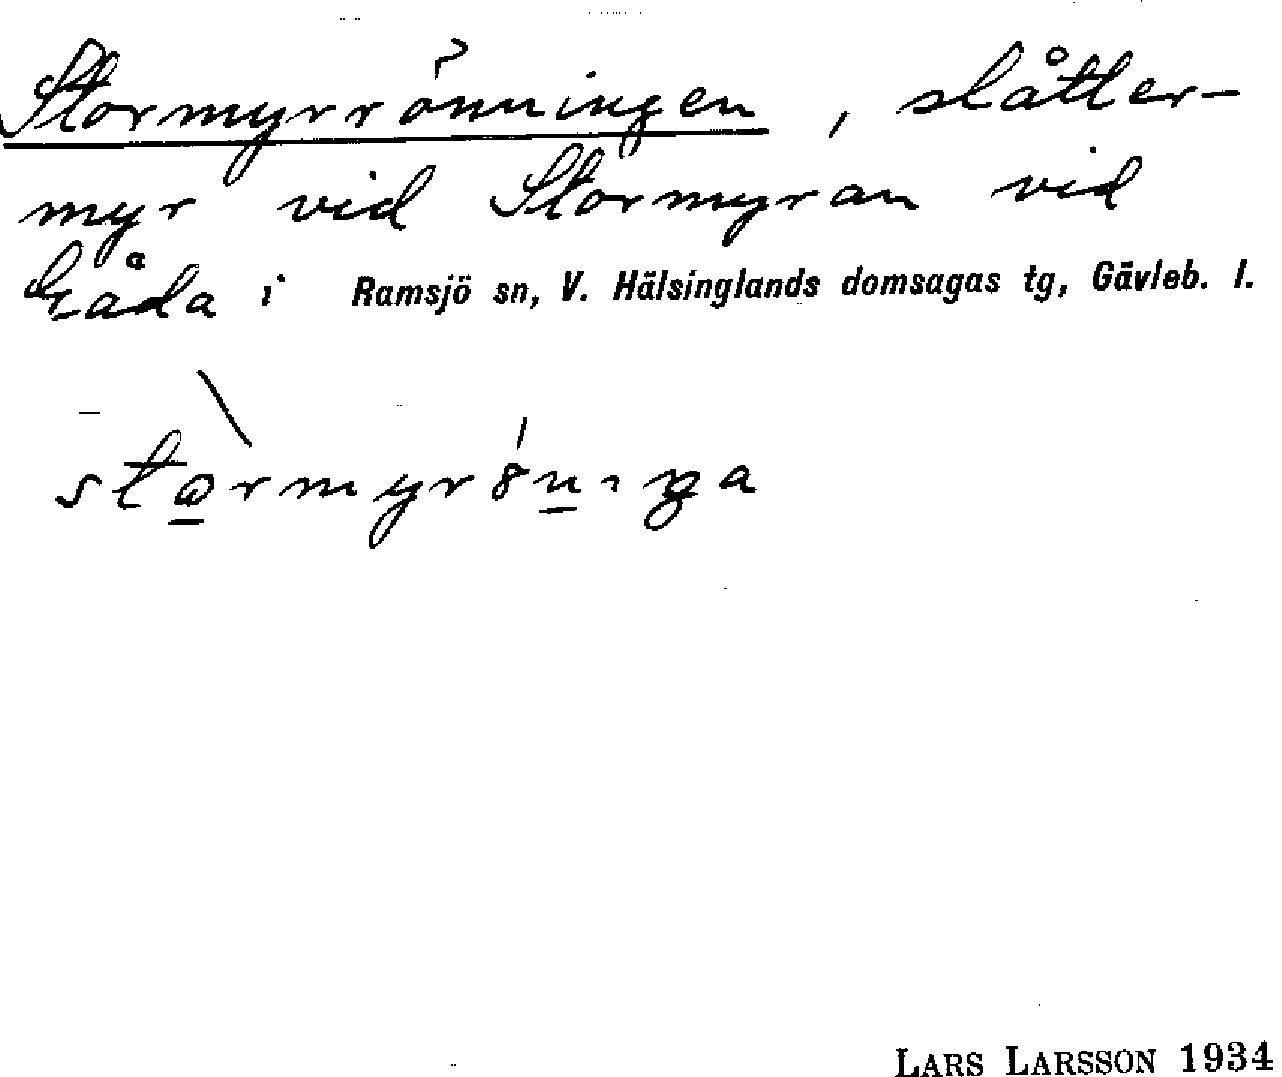 Stormyrrönningen, slåtter-
myr vid Stormyran vid
Gåda i Ramsjö sn, V. Hälsinglands domsagas tg, Gävleb. l.
LARS LARSSON 1934